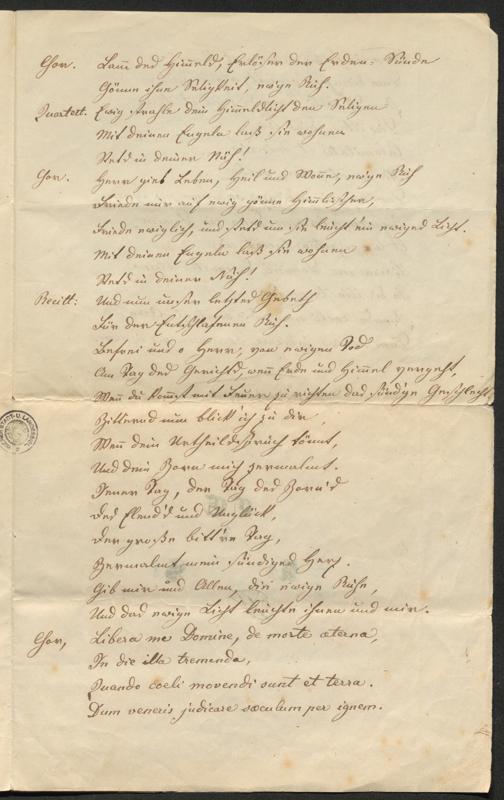 Chor. Lam̅ des Him̅els, Erlöser der Erden-Sünde
Gönne ihne Seligkeit, ewige Ruh.
Quartett. Ewig strahle dein Him̅elslicht den Seligen
Mit deinen Engeln laß sie wohnen
Stets in deiner Näh!
Chor. Herr gieb Leben, Heil und Wonne, ewge Ruh
Friede mir auf ewig gönne Himlischer,
Friede ewiglich, und stets um sie leucht ein ewiges Licht.
Mit deinen Engeln laß sie wohnen
Stets in deiner Näh!
Recitt: Und nun unser letztes Gebeth
Für der Entschlafenen Ruh.
Befrei uns o Herr, von ewigen Tod
Am Tag des Gerichts wenn Erde und Himel vergeht.
Wenn du kom̅st mit Feuer zu richten das sündge Geschlecht
Zitternd nun blick' ich zu dir,
Wenn dein Urtheilsspruch tönnt,
Und dein Zorn mich zermalmt.
Jener Tag, der Tag des Zorn's
Des Elend's und Unglück,
Der große bitt're Tag,
Zermalmt mein sündiges Herz.
Gib mir und Allen, die ewige Ruhe,
Und das ewige Licht leuchte ihnen und mir.
Chor, Libera me Domine, de morte æterna,
In die illa tremenda,
Quando coeli movendi sunt et terra.
Dum veneris judicare sæculum per ignem.